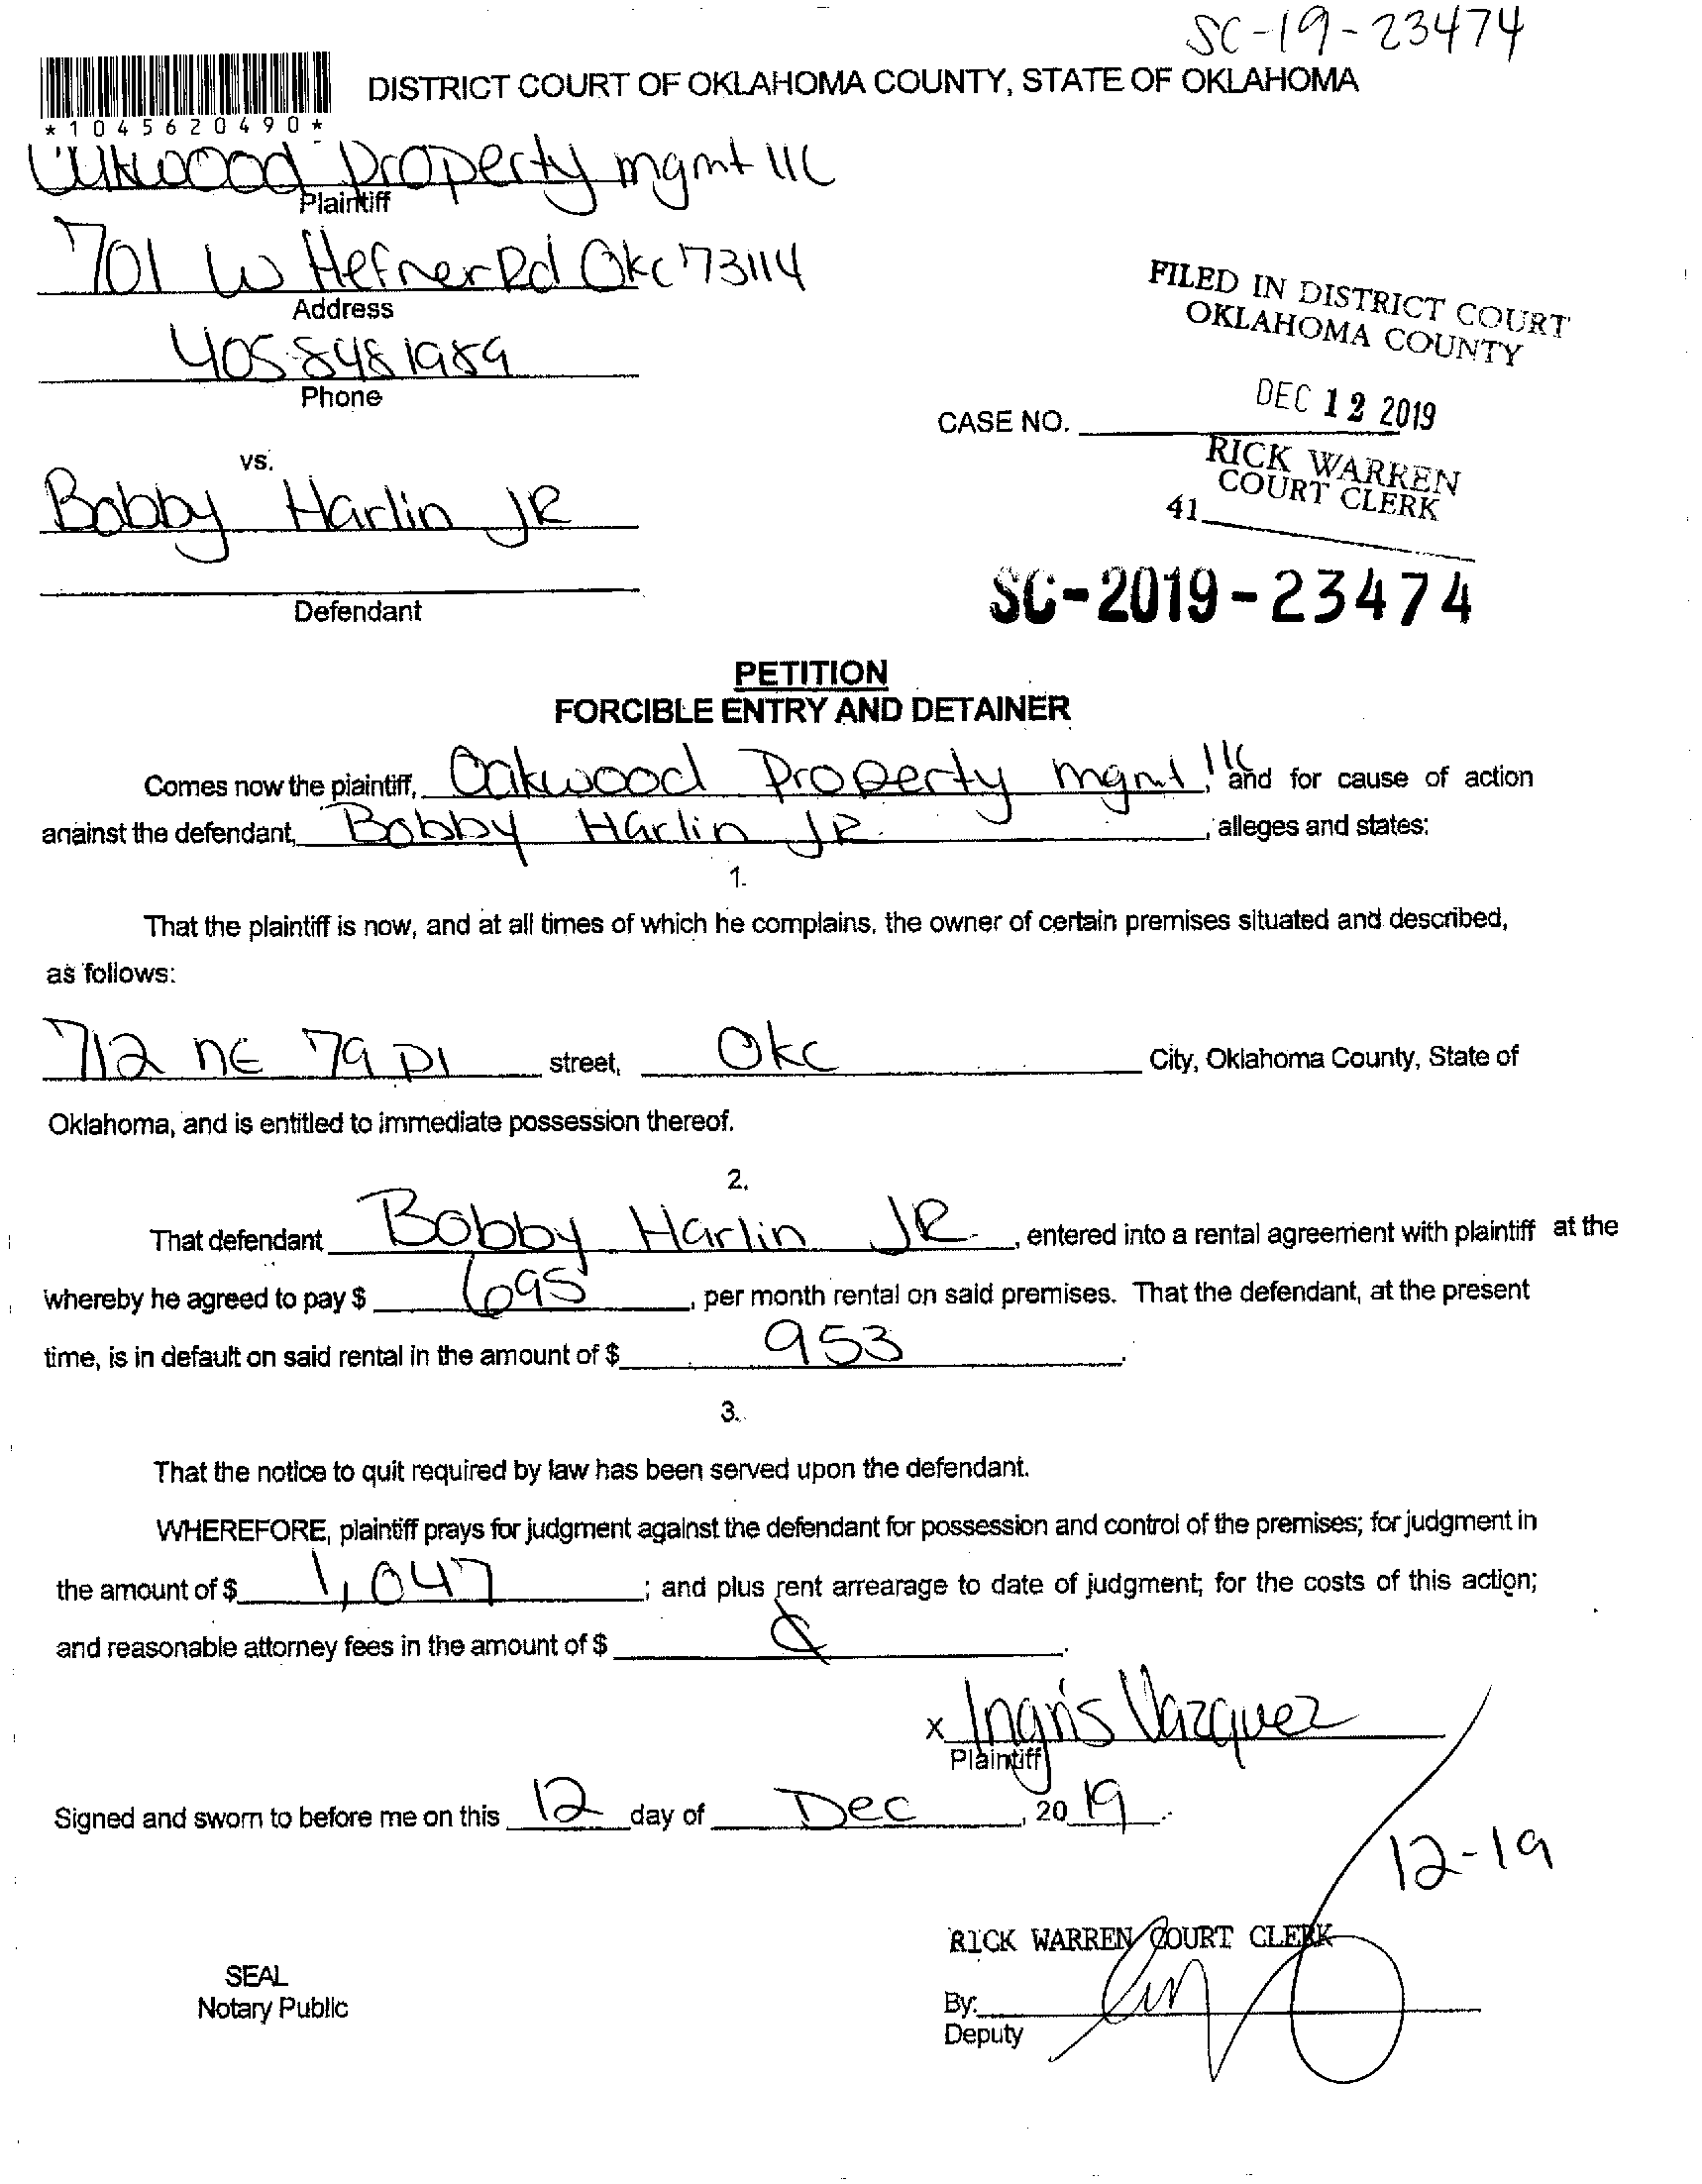 SC-19-23474
DISTRICT COURT OF OKLAHOMA COUNTY, STATE OF OKLAHOMA
*1045620490*
Oakwood Property mgmt llc
Plaintiff
701 W Hefner Rd Okc 73114
Address
405-848 1989
Phone
FILED IN DISTRICT COURT
OKLAHOMA COUNTY
DEC 12 2019
CASE NO.
RICK WARREN
COURT CLERK
41
vs.
Bobby Harlin JR
Defendant
SC-2019-23474
PETITION
FORCIBLE ENTRY AND DETAINER
Comes now the plaintiff, Oakwood Property mgmt llc, and for cause of action
against the defendant, Bobby Harlin JR., alleges and states:
1.
That the plaintiff is now, and at all times of which he complains, the owner of certain premises situated and described,
as follows:
712 NE 79 Pl street, Okc City, Oklahoma County, State of
Oklahoma, and is entitled to immediate possession thereof.
2.
That defendant Bobby Harlin JR, entered into a rental agreement with plaintiff at the
whereby he agreed to pay $ 695, per month rental on said premises. That the defendant, at the present
time, is in default on said rental in the amount of $ 953.
3.
That the notice to quit required by law has been served upon the defendant.
WHEREFORE, plaintiff prays for judgment against the defendant for possession and control of the premises; for judgment in
the amount of $ 1,047; and plus rent arrearage to date of judgment; for the costs of this action;
and reasonable attorney fees in the amount of $
x Ingris Vazquez
Plaintiff
Signed and sworn to before me on this 12 day of Dec, 20 19.
12-19
RICK WARREN COURT CLERK
SEAL
Notary Public
By:
Deputy